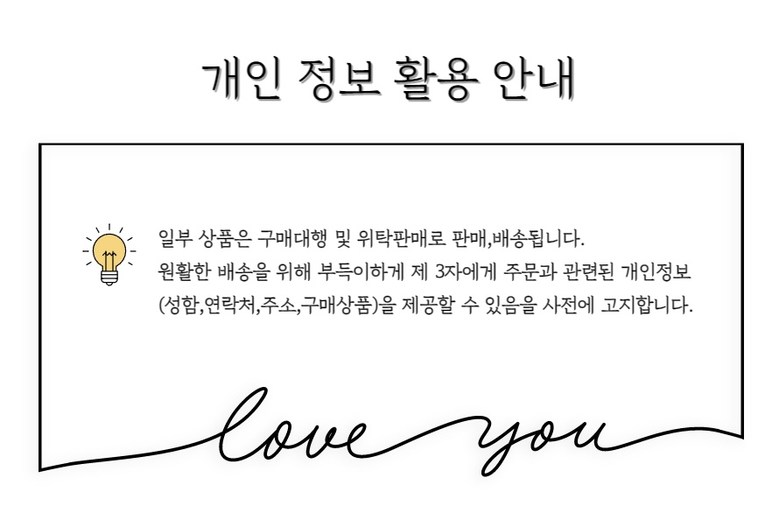 개인 정보 활용 안내
일부 상품은 구매대행 및 위탁판매로 판매,배송됩니다.
원활한 배송을 위해 부득이하게 제 3자에게 주문과 관련된 개인정보
(성함,연락처,주소,구매상품)을 제공할 수 있음을 사전에 고지합니다.
love you